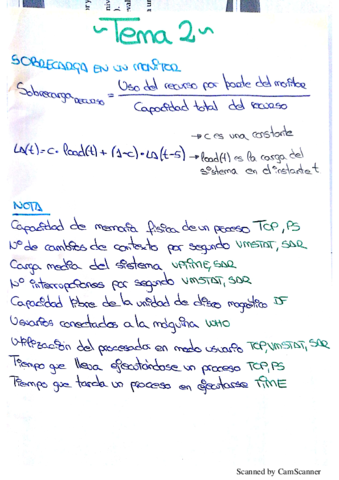 ~Tema 2~
SOBRECARGA EN UN MONITOR
Sobrecarga recurso = Uso del recurso por parte del monitor
Capacidad total del recurso
→ c es una constante
La(t) = c · load(t) + (1-c) · La(t-5) → load(t) es la carga del
sistema en el instante t
NOTA
Capacidad de memoria física de un proceso TOP, PS
Nº de cambios de contexto por segundo VMSTAT, SAR
Carga media del sistema UPTIME, SAR
Nº interrupciones por segundo VMSTAT, SAR
Capacidad libre de la unidad de disco magnético DF
Usuarios conectados a la máquina WHO
Utilización del procesador en modo usuario TOP, VMSTAT, SAR
Tiempo que lleva ejecutándose un proceso TOP, PS
Tiempo que tarda un proceso en ejecutarse TIME
Scanned by CamScanner